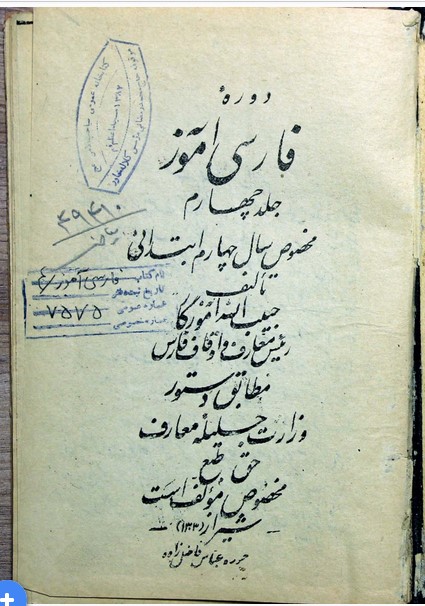 دورهٔ
فارسی آموز
جلد چهارم
مخصوص سال چهارم ابتدائی
تألیف
حبیب الله آموزگار
رئیس معارف و اوقاف فارس
مطابق دستور
وزارت جلیلهٔ معارف
حق طبع
مخصوص مؤلف است
شیراز (۱۳۰)
حرره عباس فاضل زاده
۴۹۴۱۰
نام کتاب فارسی آموز
تاریخ ثبت دفتر
شماره عمومی ۷۵۷۵
شماره خصوصی
کتابخانه عمومی
۱۳۸۲